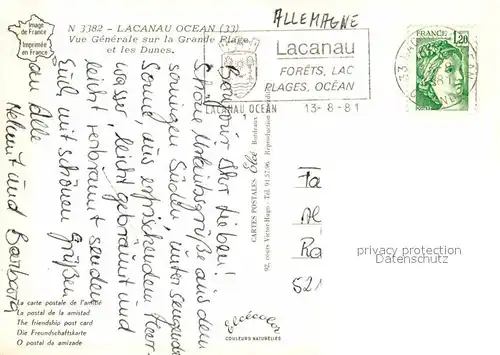 Image
de France
Imprimée
en France
N 3382 - LACANAU OCEAN (33)
Vue Générale sur la Grande Plage
et les Dunes.
ALLEMAGNE
Lacanau
FORÊTS, LAC
PLAGES, OCÉAN
LACANAU OCEAN
13-8-81
1,20
Bonjour Ihr Lieben!
schöne Urlaubsgrüße aus dem
sonnigen Süden, unter sengender
Sonne, aus erfrischendem Meer-
wasser, leicht gebräunt und
leicht verbrannt senden
Euch mit schönen Grüßen
an Alle
Helmut und Barbara
CARTES POSTALES Elcé Bordeaux
92, cours Victor-Hugo - Tél. 91.57.06 Reproduction
Fa
Al
Ra
521
elcécolor
COULEURS NATURELLES
La carte postale de l'amitié
La postal de la amistad
The friendship post card
Die Freundschaftskarte
O postal da amizade
copyright protection